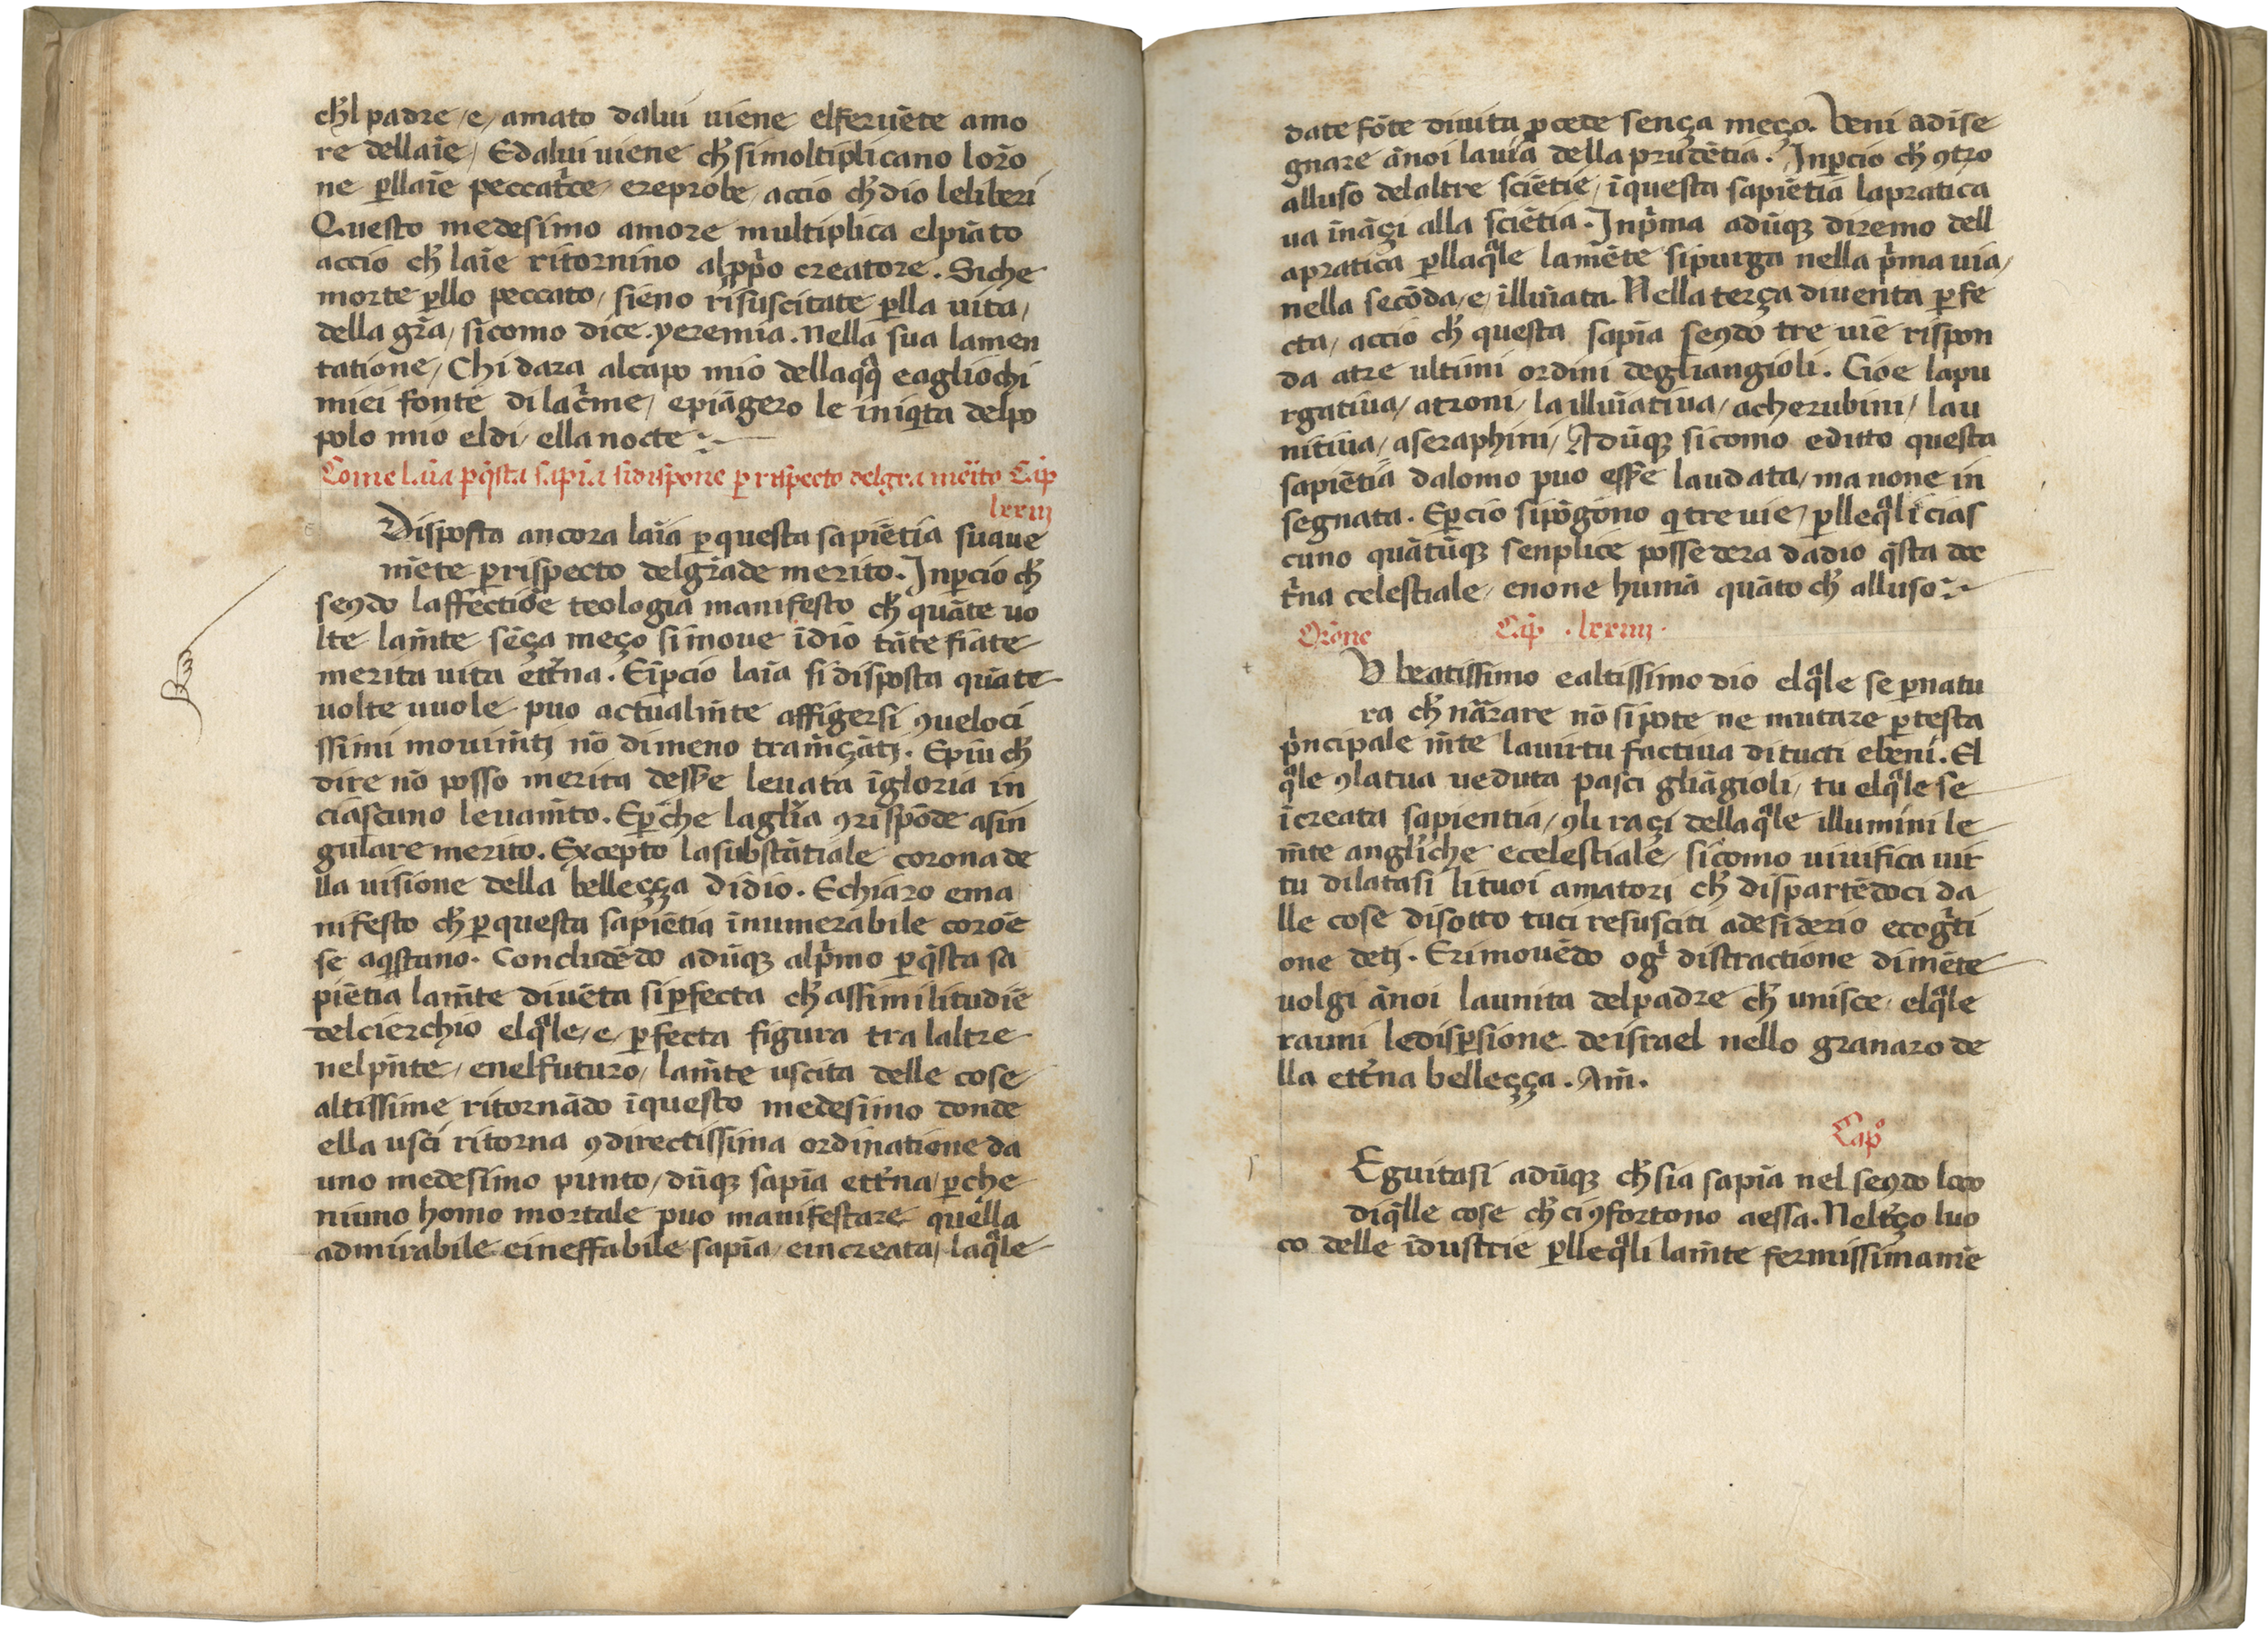 ch̄l padre / e / amato dalui uiene elferuēte amo
re dellaīe / Edalui uiene ch̄ simoltiplicano lorō
ne ꝑllaīe peccatͥce ereprobe / accio ch̄ dio leliberi
Questo medesimo amore multiplica elpiāto
accio ch̄ laīe ritornino alpp̄o creatore. Siche
morte ꝑllo peccato / sieno risuscitate ꝑlla uita /
della grā / sicomo dice yeremia. Nella sua lamen
tatione / Chi dara alcapo mio dellaqͣ eagliochi
miei fonte di lacͥme / epiāgero le iniqͥta delpo
polo mio eldi / ella nocte
Come laīa ꝑ q̄sta sapīa si dispone ꝑ rispecto delgrā mēito Cap̄
lxxiij
Disposta ancora laīa ꝑ questa sapiētia suaue
mēte ꝑ rispecto delgrāde merito. Inꝑcio ch̄
seꝯdo laffectiōe teologia manifesto ch̄ quāte uo
lte lam̄te sēça meço simoue īdio tāte fiate
merita uita et̄tna. Eīꝑcio laīa si disposta quāte
uolte uuole puo actualm̄te affigersi ꝯueloci
ssimi mouim̄tj nō dimeno tram̄çātj. Epiu ch̄
dire nō posso merita dess̄e leuata īgloria in
ciascuno leuam̄to. Eꝑche laglīa ꝯrispōde asin
gulare merito. Excepto lasubstātiale corona de
lla uisione della belleçça didio. Echiaro ema
nifesto ch̄ ꝑ questa sapiētia īnumerabile coroē
se aqͥstano. Concludēdo adūqꝫ alpͥmo ꝑ q̄sta sa
piētia lam̄te diuēta siꝑfecta ch̄ assimilitudiē
delcierchio elqͣle / e / ꝑfecta figura tra laltre
nelpn̄te / enelfuturo / lam̄te uscita delle cose
altissime ritornādo īquesto medesimo donde
ella usci ritorna ꝯdirectissima ordinatione da
uno medesimo punto / dūqꝫ sapīa et̄tna / ꝑche
niuno homo mortale puo manifestare quella
admirabile eineffabile sapīa / eincreata / laqͣle
date fōte diuita ꝓcede sença meço. Veni adise
gnare ānoi lauia della prudētia. Inꝑcio ch̄ ꝯtro
alluso delaltre sciētie / īquesta sapiētia lapratica
ua īnāçi alla sciētia. Inpͥma adūqꝫ diremo dell
apratica ꝑllaqͣle lamēte sipurga nella pͥma uia /
nella secōda / e / illuīata. Nella terça diuenta ꝑfe
cta / accio ch̄ questa sapīa seꝯdo tre uie rispon
da atre ultimi ordini degliangioli. Cioe lapu
rgatiua / atroni / la illuīatiua / acherubini / lau
nitiua / aseraphini / Adūqꝫ sicomo editto questa
sapiētia dalomo puo ess̄e laudata / ma none in
segnata. Eꝑcio sipōgono qͥ tre uie / ꝑlleqͣli cias
cuno quātūqꝫ senplice possedera dadio q̄sta doc
tͥna celestiale / enone humā quāto ch̄ alluso
Orōne Cap̄ . lxxiiij .
O beatissimo ealtissimo dio elqͣle se ꝑnatu
ra ch̄ nārare nō sipote ne mutare ꝑ testa
pͥncipale m̄te lauirtu factiua di tucti ebeni. El
qͣle ꝯlatua ueduta pasci gliāgioli / tu elqͣle se
īcreata sapientia / ꝯli raçi dellaqͣle illumini le
m̄te anglͥche ecelestiale / sicomo uiuifica uir
tu dilatasi lituoi amatori ch̄ dispartēdoci da
lle cose disotto tuci resusciti adesiderio ecogͥti
one detj. Erimouēdo ogͥ distractione dimēte
uolgi ānoi launita delpadre ch̄ unisce / elqͣle
rauni ledisꝑsione deisrael nello granaro de
lla et̄tna belleçça. Am̄.
Capº
Eguitasi adūqꝫ ch̄ sia sapīa nel seꝯdo loco
diq̄lle cose ch̄ ci ꝯfortono aessa. Nelt̄ço luo
co delle īdustrie ꝑlleqͣli lam̄te fermissimamē